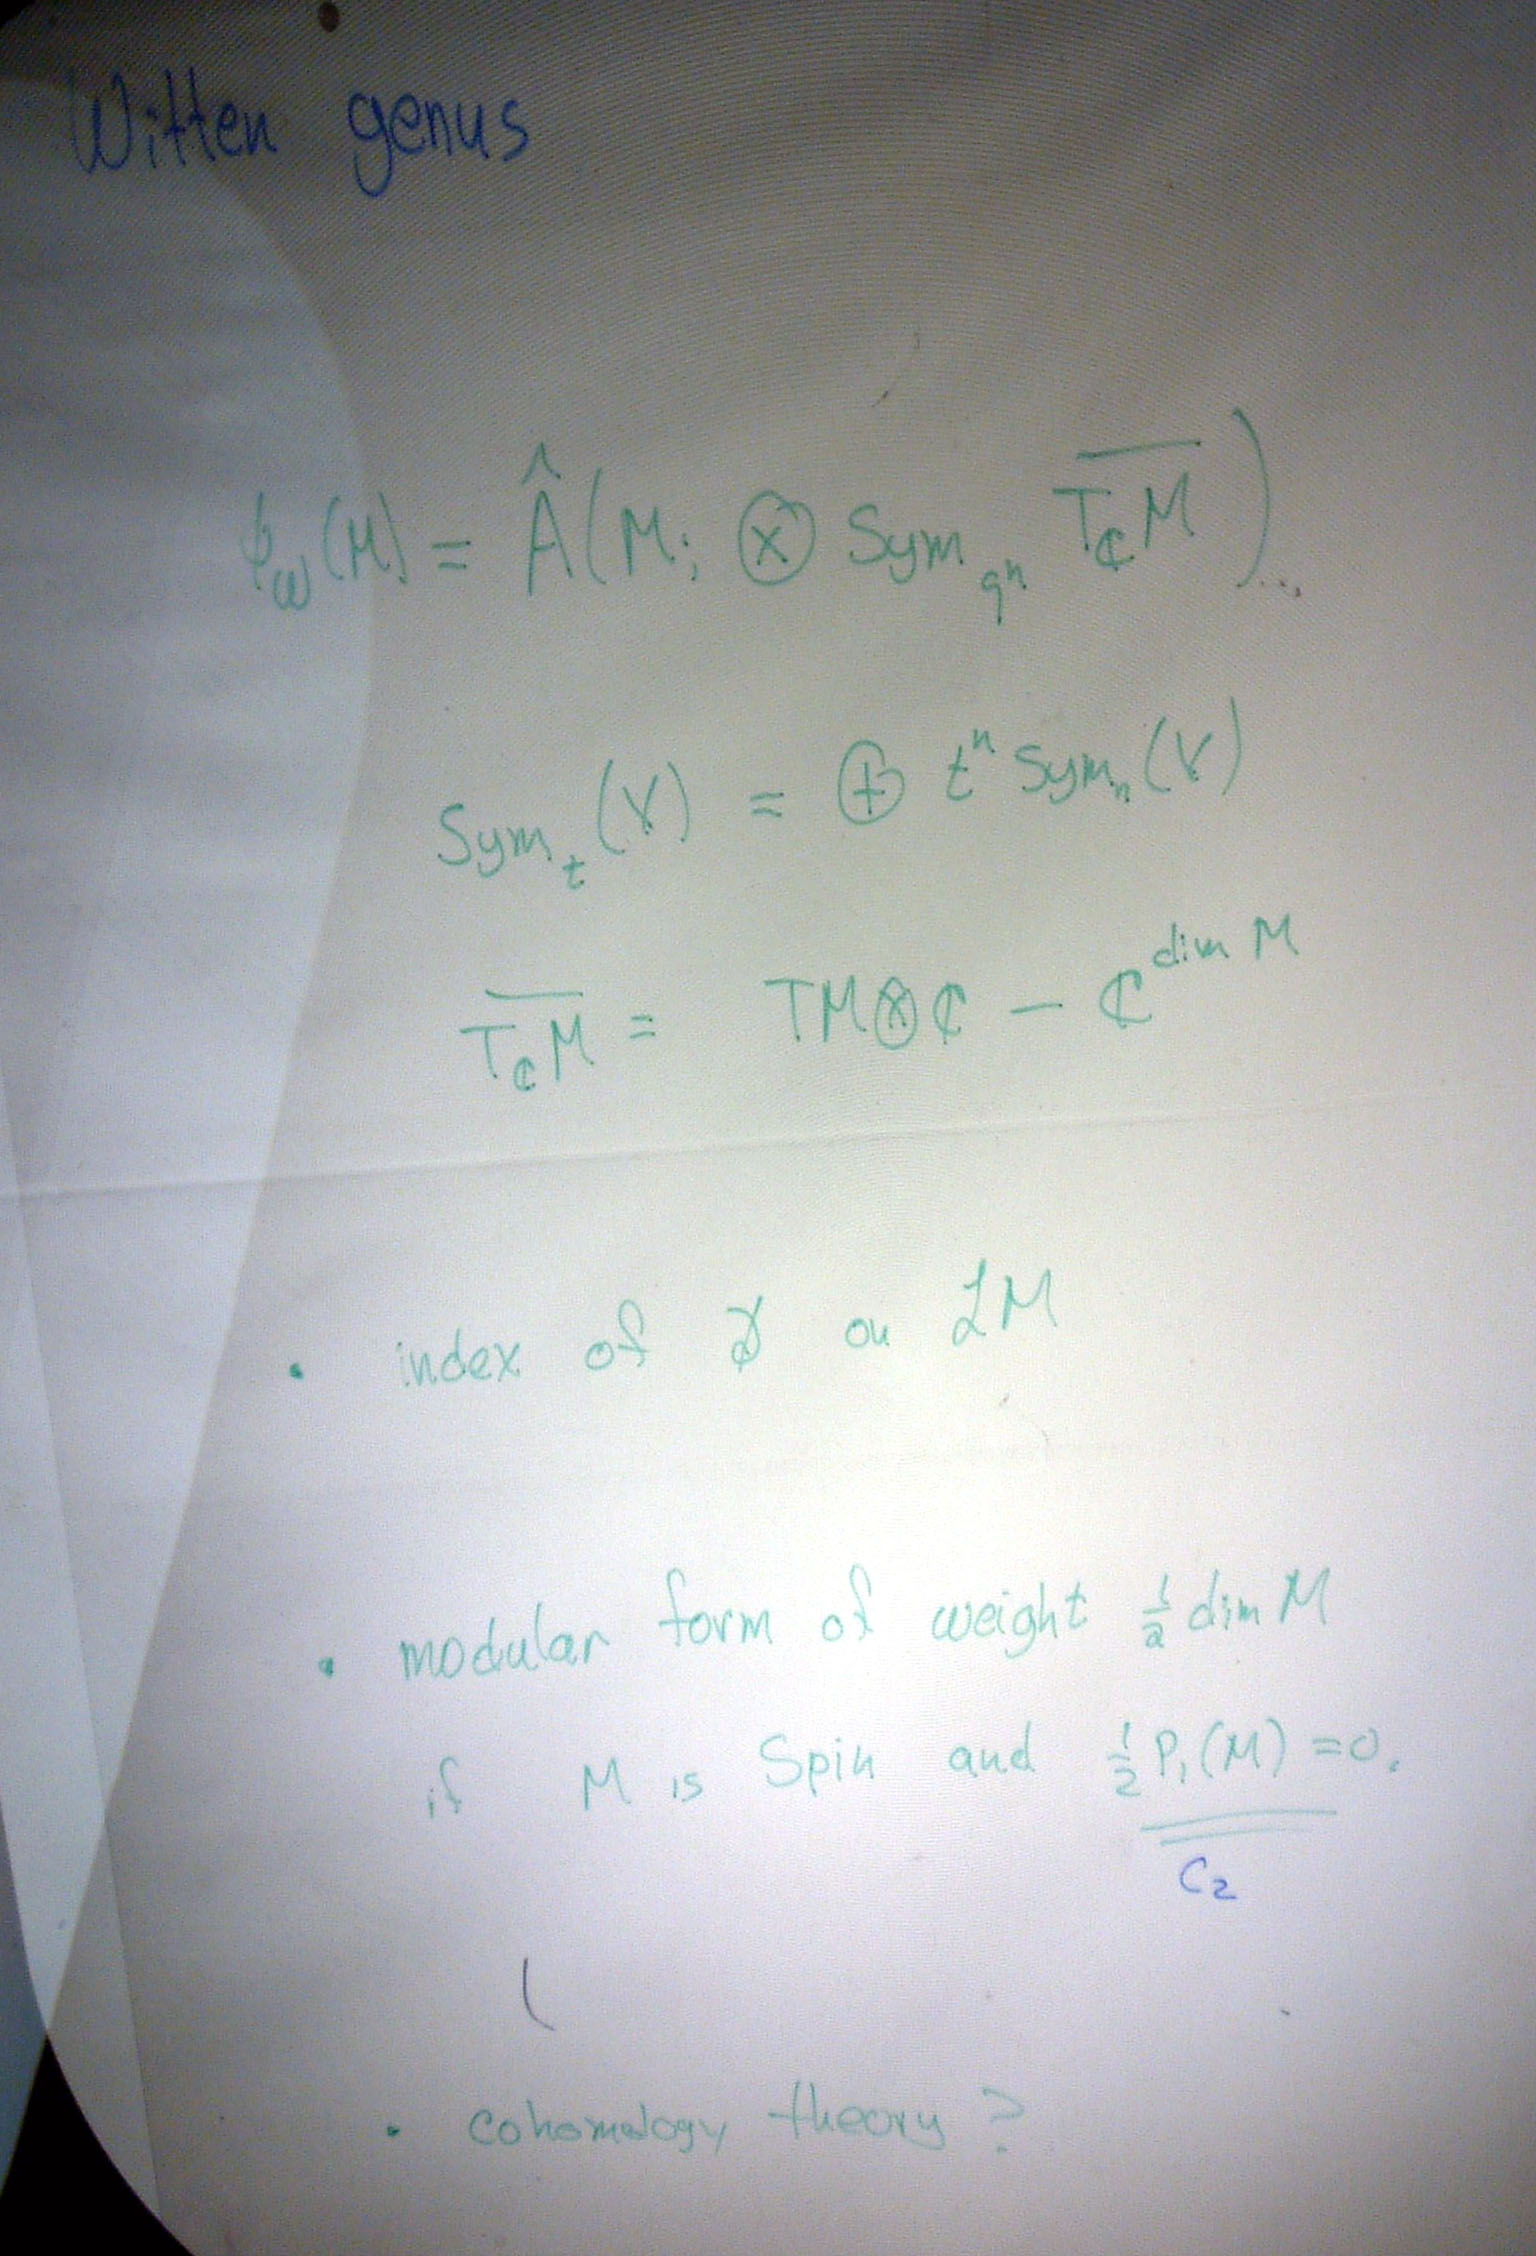 Witten genus
ϕ_W(M) = Â(M; ⊗ Sym_{q^n} \overline{T_ℂM})...
Sym_t(V) = ⊕ t^n Sym_n(V)
\overline{T_ℂM} = TM⊗ℂ − ℂ^{dim M}
• index of ∂̸ on ℒM
• modular form of weight ½ dim M
if M is Spin and ½ p₁(M) = 0.
c₂
(
• cohomology theory?